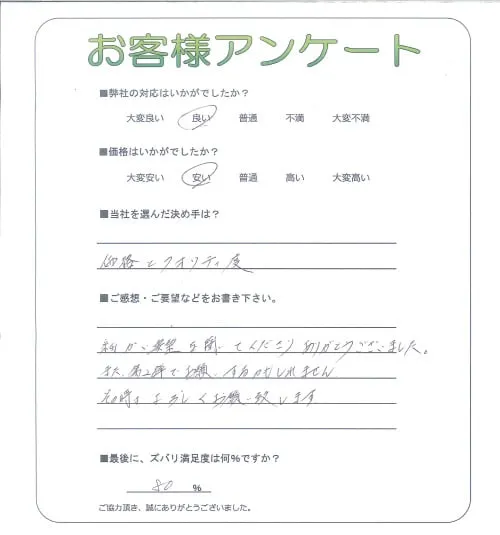 お客様アンケート
■弊社の対応はいかがでしたか？
大変良い 良い 普通 不満 大変不満
■価格はいかがでしたか？
大変安い 安い 普通 高い 大変高い
■当社を選んだ決め手は？
価格とクオリティ度
■ご感想・ご要望などをお書き下さい。
細かい要望を聞いてくださりありがとうございました。
また、第2弾でお願いするかもしれません
その時はよろしくお願い致します
■最後に、ズバリ満足度は何%ですか？
80 %
ご協力頂き、誠にありがとうございました。